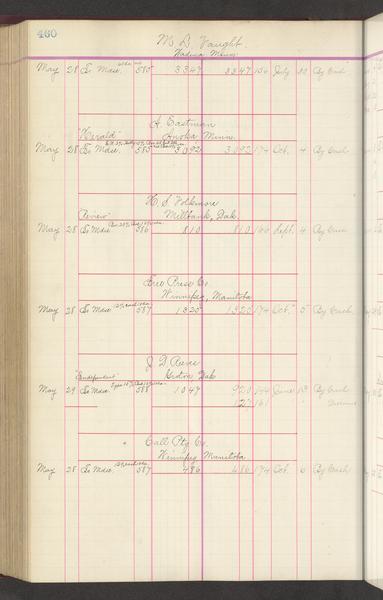 460
M. D. Vaught.
Wadena Minn.
May 28 To Mdse. 585 3347 3347 156 July 30 By Cash
A. Eastman
"Herald" Anoka Minn.
May 28 To Mdse. 585 3092 3092 174 Oct. 4 By Cash
H. S. Volkmore
Review" Millbank, Dak.
May 28 To Mdse 586 810 810 Sept. 4 By
Free Press Co
Winnipeg, Manitoba
May 28 To Mdse 587 1325 174 Oct. 5 By Cash
J. D. Reeve
"Independent" Groton Dak
May 29 To Mdse. 588 1047 920 144 June 13 By Cash
127 161
Call Ptg Co.
Winnipeg Manitoba
May 28 To Mdse. 587 486 486 174 Oct. 6 By Cash